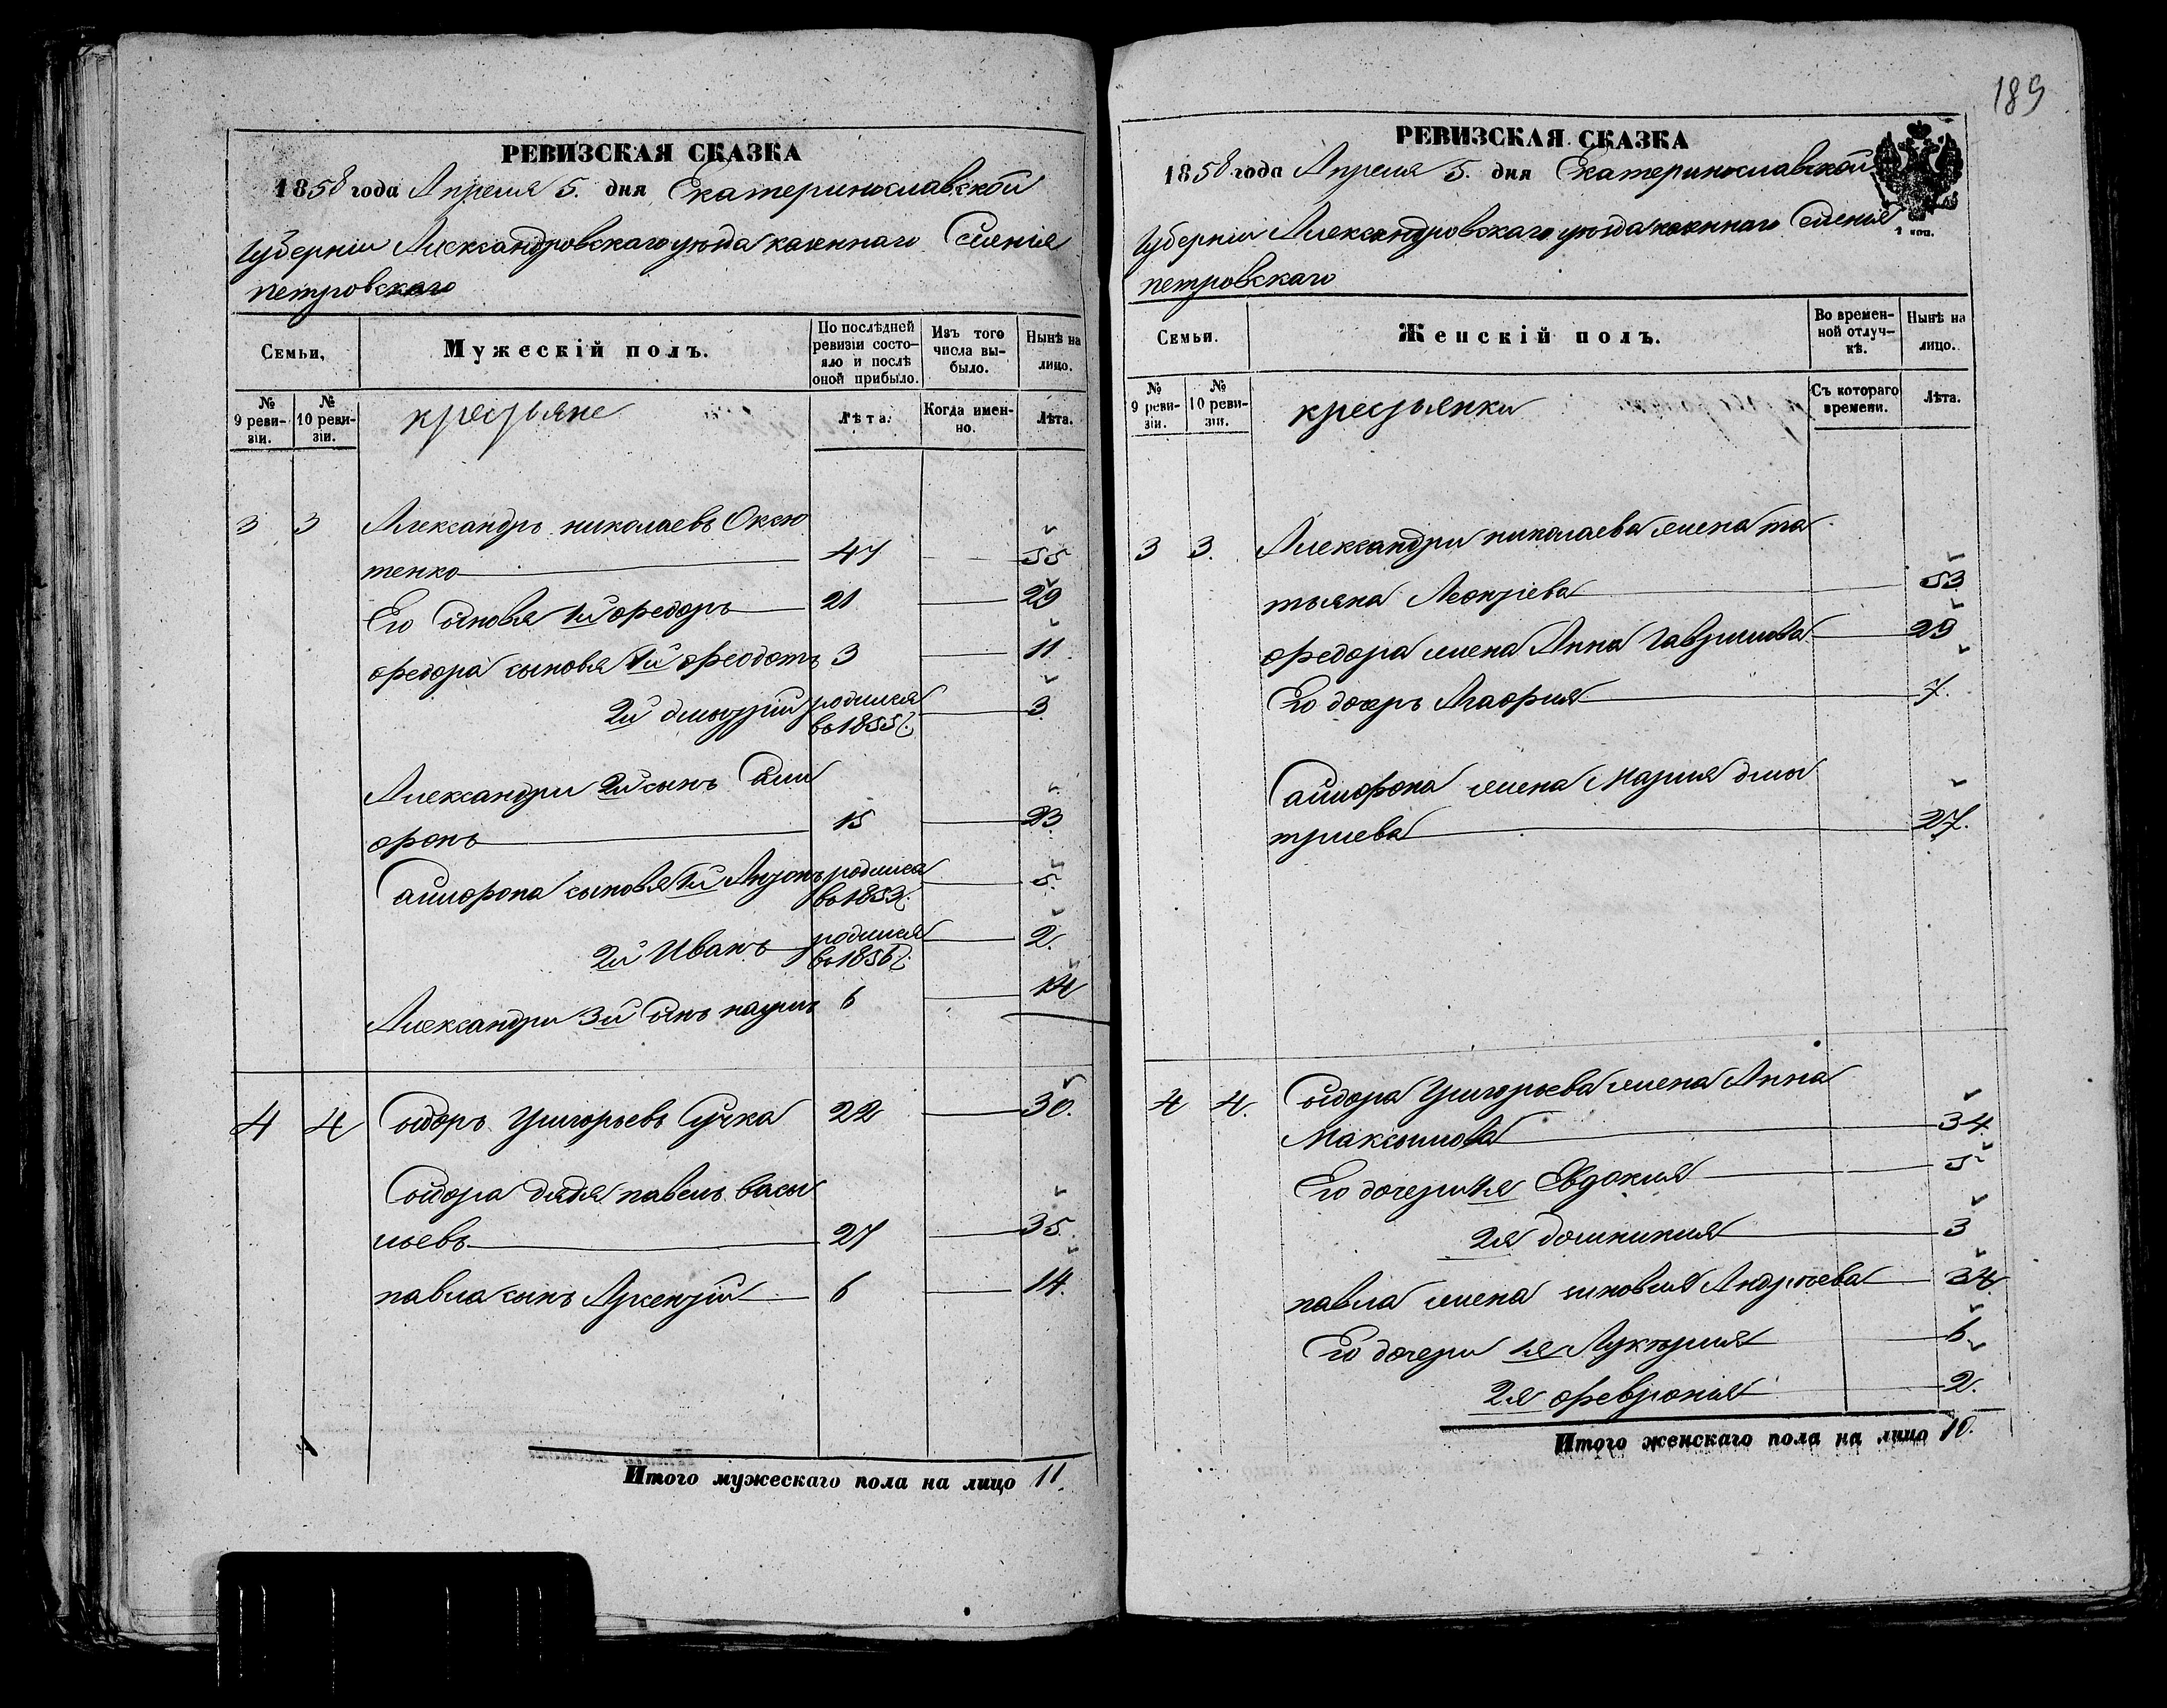 189
РЕВИЗСКАЯ СКАЗКА
1858 года Апреля 5. дня Екатеринославской
Губерніи Александровскаго уѣзда казеннаго Селенія
петровскаго
Семьи,
Мужескій полъ.
По послѣдней ревизіи состояло и послѣ оной прибыло.
Изъ того числа выбыло.
Нынѣ на лицо.
№ 9 ревизіи.
№ 10 ревизіи.
крестьяне
Лѣта.
Когда именно.
Лѣта.
3 3 Александръ николаевъ Оксю
тенко 47 55
Его Сыновья 1й федоръ 21 29
федора сыновья 1й феодотъ 3 11
2й дмытрій родился во 1855 г. 3
Александра 2й сынъ Сам
фонъ 15 23
Самсфона сыновья 1й Антонъ родился во 1853 г. 5.
2й Иванъ родился во 1856 г. 2.
Александра 3й сынъ наумъ 6 14
4 4 Сыдоръ Григорьевъ Сучка 22 30.
Сыдора дядя павелъ васы
льевъ 27 35.
павла сынъ Арсентій 6 14.
Итого мужескаго пола на лицо 11.
РЕВИЗСКАЯ СКАЗКА
1858 года Апреля 5. дня Екатеринославской
Губерніи Александровскаго уѣзда казеннаго Селенія
петровскаго
Семьи.
Женскій полъ.
Во временной отлучкѣ.
Нынѣ на лицо.
№ 9 ревизіи.
№ 10 ревизіи.
крестьянки
Съ котораго времени.
Лѣта.
3 3. Александра николаева жена та
тьяна Леонтіева 53
федора жена Анна Гаврилова 29
Его дочеръ Агафия 7.
жена Мария дмы
триева 27.
4 4. Сыдора Григорьева жена Анна
Максымова 34
Его дочери 1я Евдокия 5
2я домникия 3
павла жена зиновия Андреева 34
Его дочери 1я Лукерия 6
2я феврония 2.
Итого женскаго пола на лицо 10.